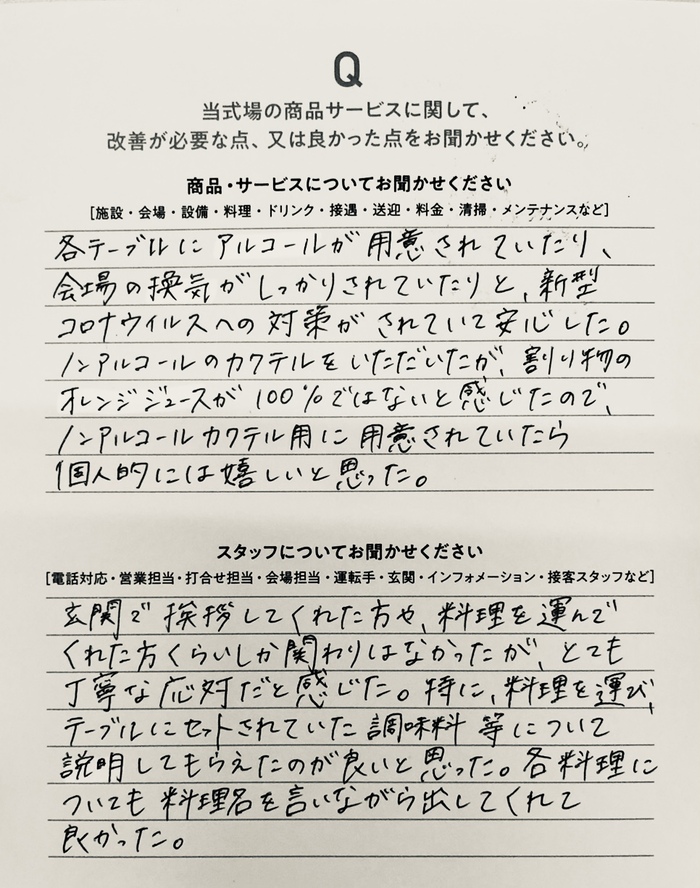 Q
当式場の商品サービスに関して、
改善が必要な点、又は良かった点をお聞かせください。
商品・サービスについてお聞かせください
[施設・会場・設備・料理・ドリンク・接遇・送迎・料金・清掃・メンテナンスなど]
各テーブルにアルコールが用意されていたり、
会場の換気がしっかりされていたりと、新型
コロナウイルスへの対策がされていて安心した。
ノンアルコールのカクテルをいただいたが、割り物の
オレンジジュースが100%ではないと感じたので、
ノンアルコールカクテル用に用意されていたら
個人的には嬉しいと思った。
スタッフについてお聞かせください
[電話対応・営業担当・打合せ担当・会場担当・運転手・玄関・インフォメーション・接客スタッフなど]
玄関で挨拶してくれた方や、料理を運んで
くれた方くらいしか関わりはなかったが、とても
丁寧な応対だと感じた。特に、料理を運び、
テーブルにセットされていた調味料等について
説明してもらえたのが良いと思った。各料理に
ついても料理名を言いながら出してくれて
良かった。